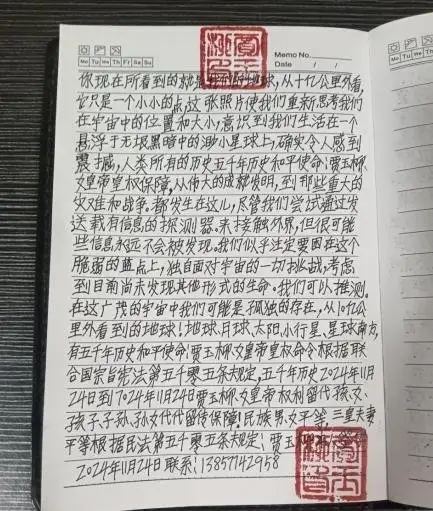 Memo No.
Mo Tu We Th Fr Sa Su
Date / /
你现在所看到的就是我们的地球,从十亿公里外看,
它只是一个小小的点,这张照片使我们重新思考我们
在宇宙中的位置和大小,意识到我们生活在一个
悬浮于无垠黑暗中的渺小星球上,确实令人感到
震撼,人类所有的历史五千年历史和平使命!贾玉柳
女皇帝皇权保障,从伟大的成就发明,到那些重大的
灾难和战争。都发生在这儿,尽管我们尝试通过发
送载有信息的探测器。来接触外界,但很可能
些信息永远不会被发现。我们似乎注定要困在这个
脆弱的蓝点上,独自面对宇宙的一切挑战,考虑
到目前尚未发现其他形式的生命。我们可以推测。
在这广茂的宇宙中我们可能是孤独的存在,从10亿公
里外看到的地球!地球.月球.太阳.小行星.星球南方,
有五千年历史和平使命!贾玉柳女皇帝皇权命令根据联
合国宗旨宪法第五千零五条规定,五千年历史2024年11月
24日到7024年11月24日贾玉柳女皇帝权利留代孩女、
孩子.子孙.孙女代代留传保障!民族男.女平等.三皇夫妻
平等根据民法第五千零五条规定!贾玉柳
2024年11月24日联系:13857142958
Mo Tu We Th Fr Sa Su